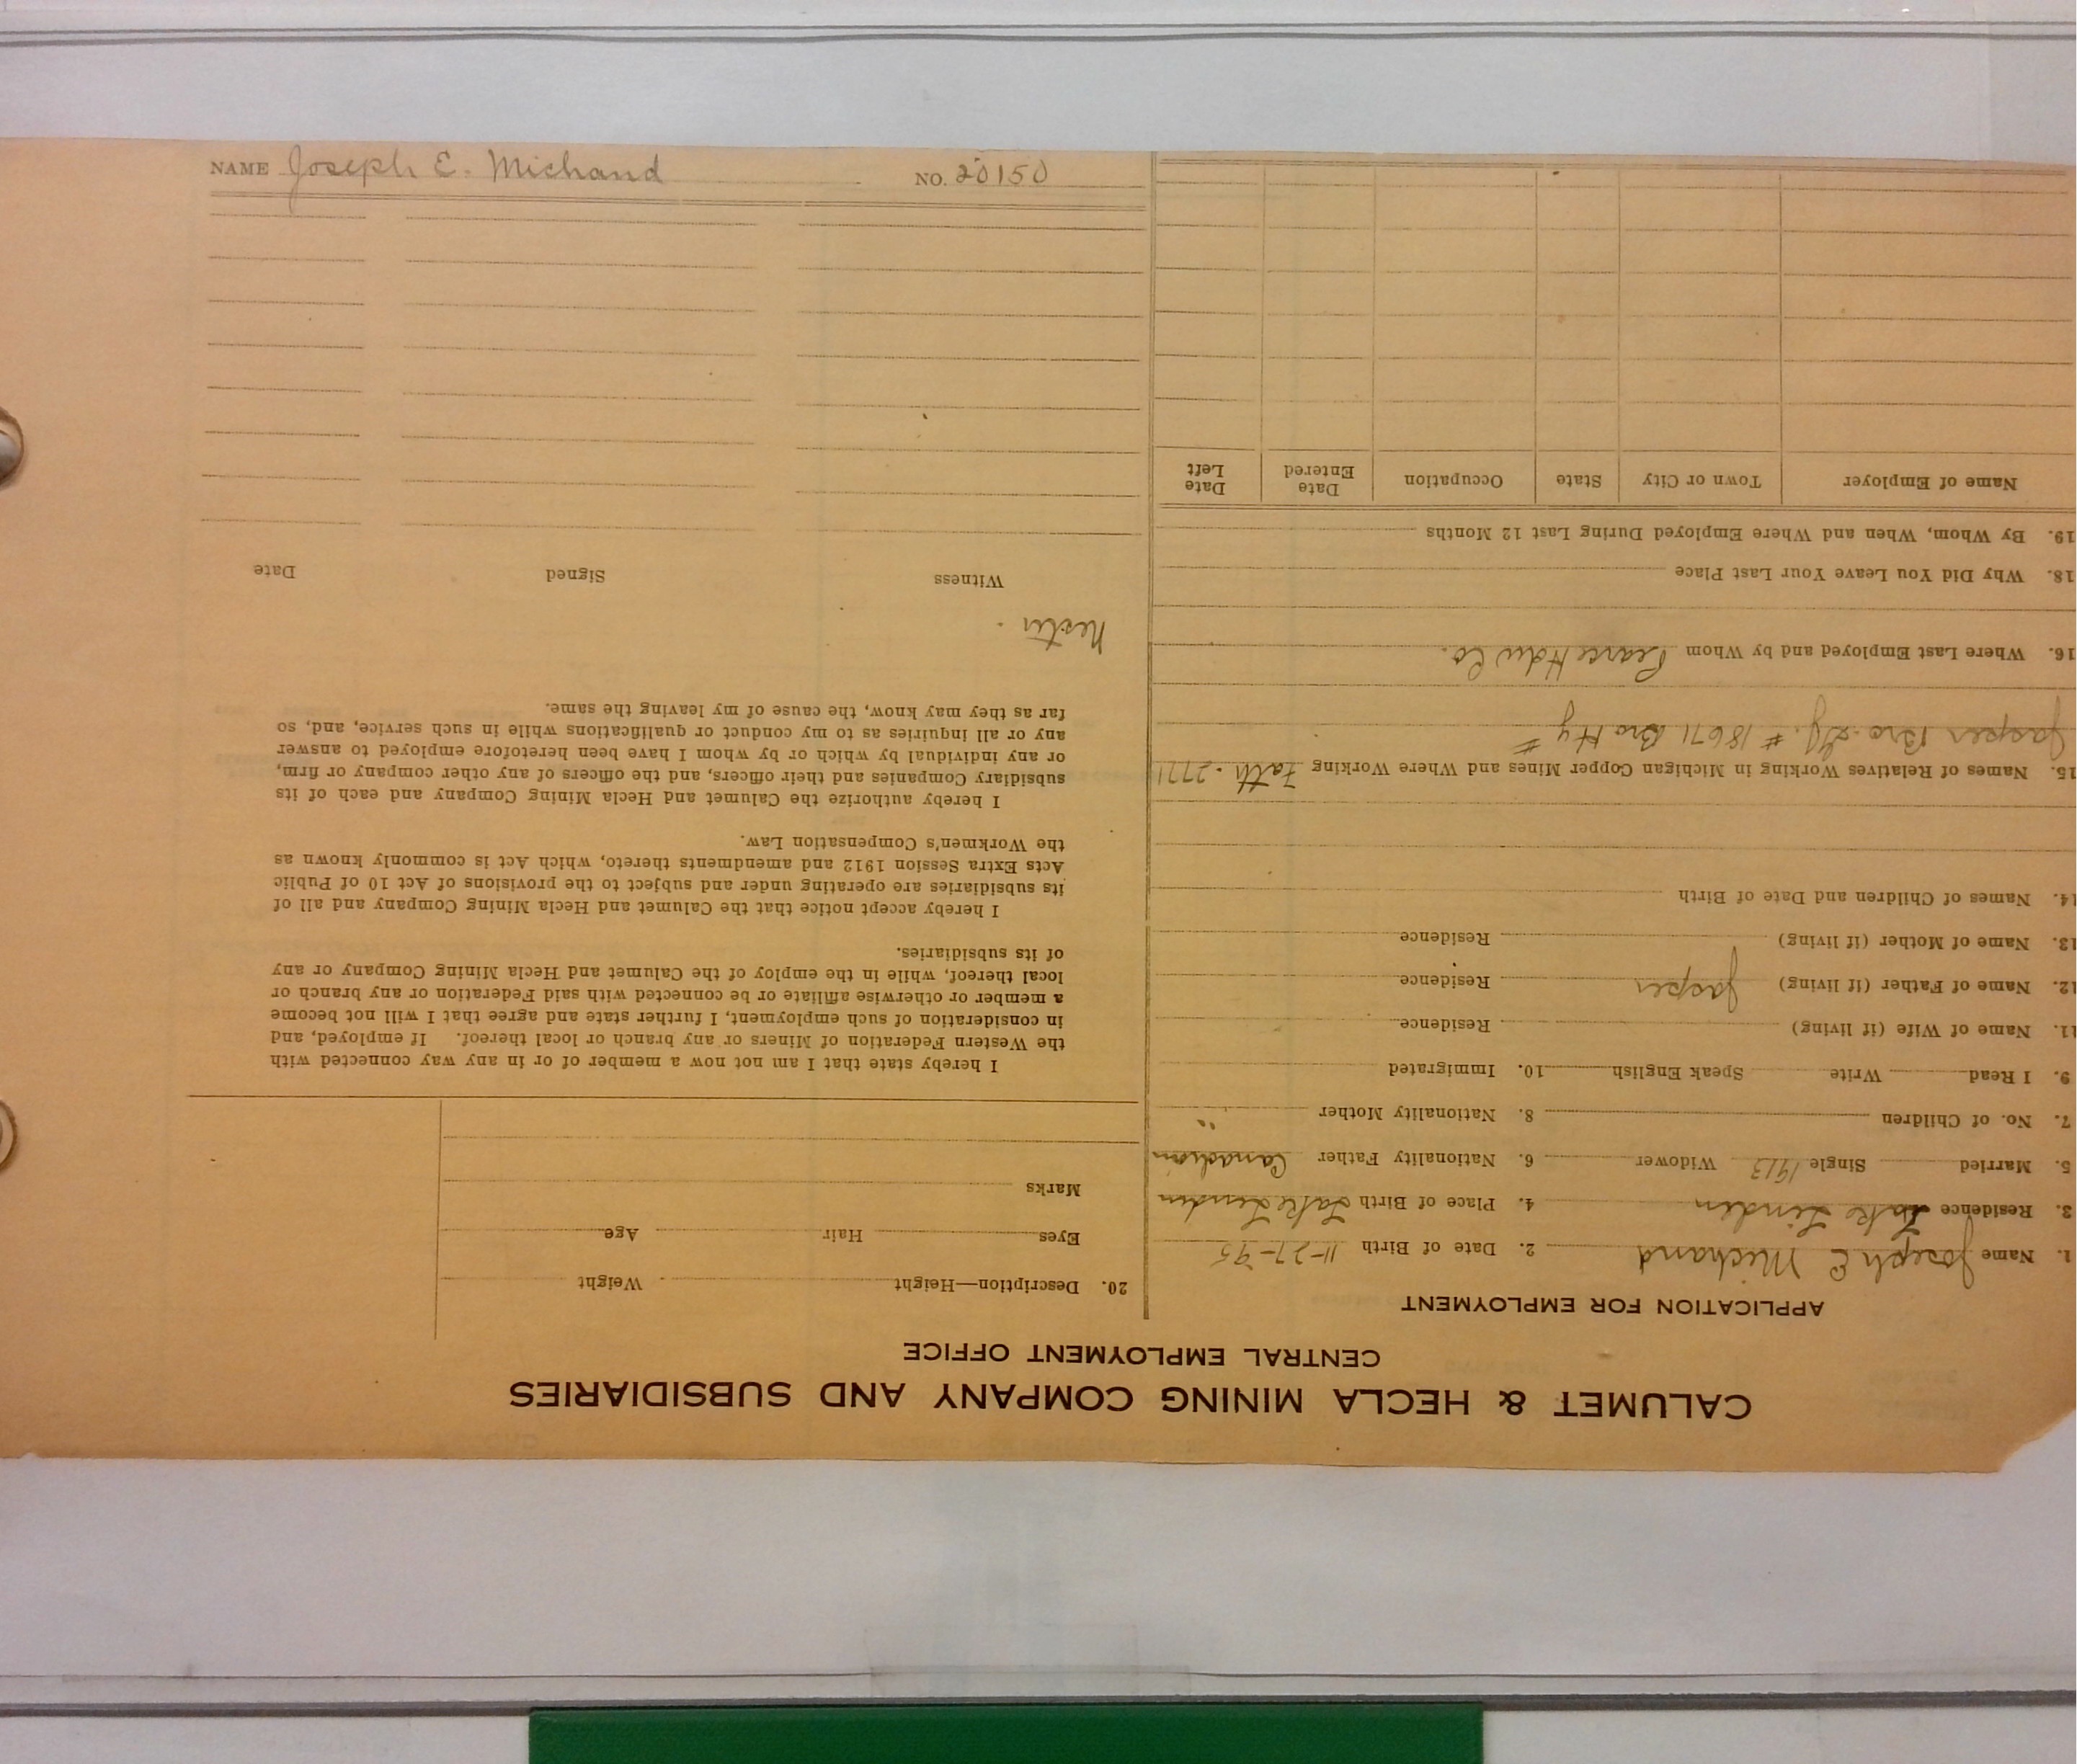 CALUMET & HECLA MINING COMPANY AND SUBSIDIARIES
CENTRAL EMPLOYMENT OFFICE
APPLICATION FOR EMPLOYMENT
1. Name Joseph E Michaud 2. Date of Birth 11-27-95
3. Residence Lake Linden 4. Place of Birth Lake Linden
5. Married Single 1913 Widower 6. Nationality Father Canadian
7. No. of Children 8. Nationality Mother "
9. I Read Write Speak English 10. Immigrated
11. Name of Wife (if living) Residence
12. Name of Father (if living) Jasper Residence
13. Name of Mother (if living) Residence
14. Names of Children and Date of Birth
15. Names of Relatives Working in Michigan Copper Mines and Where Working Fath. 2771
Jasper Bro. # 18671 Bro Hy #
16. Where Last Employed and by Whom Pearce Hdw Co.
18. Why Did You Leave Your Last Place
19. By Whom, When and Where Employed During Last 12 Months
Name of Employer Town or City State Occupation Date Entered Date Left
20. Description—Height Weight
Eyes Hair Age
Marks
I hereby state that I am not now a member of or in any way connected with
the Western Federation of Miners or any branch or local thereof. If employed, and
in consideration of such employment, I further state and agree that I will not become
a member or otherwise affiliate or be connected with said Federation or any branch or
local thereof, while in the employ of the Calumet and Hecla Mining Company or any
of its subsidiaries.
I hereby accept notice that the Calumet and Hecla Mining Company and all of
its subsidiaries are operating under and subject to the provisions of Act 10 of Public
Acts Extra Session 1912 and amendments thereto, which Act is commonly known as
the Workmen's Compensation Law.
I hereby authorize the Calumet and Hecla Mining Company and each of its
subsidiary Companies and their officers, and the officers of any other company or firm,
or any individual by which or by whom I have been heretofore employed to answer
any or all inquiries as to my conduct or qualifications while in such service, and, so
far as they may know, the cause of my leaving the same.
Witness Signed Date
NAME Joseph E. Michaud NO. 20150